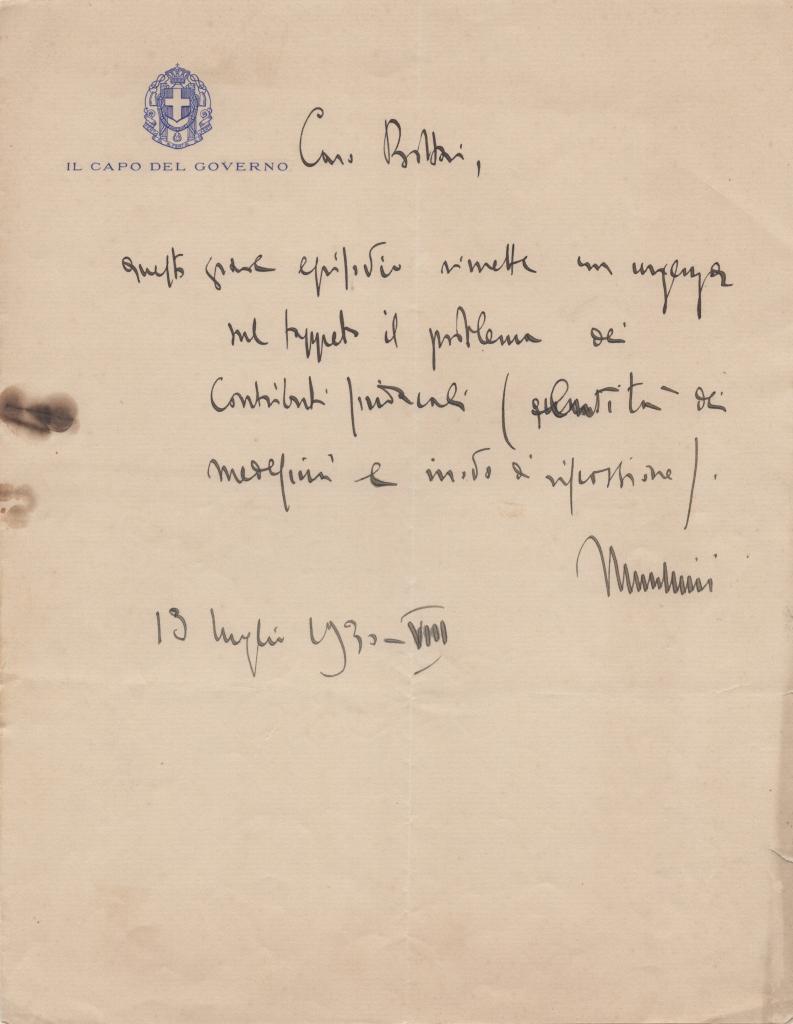 IL CAPO DEL GOVERNO
Caro Bottai,
questo grave episodio rimette con urgenza
sul tappeto il problema dei
Contributi sindacali (quantità dei
medesimi e modo di riscossione).
Mussolini
13 luglio 1930-VIII